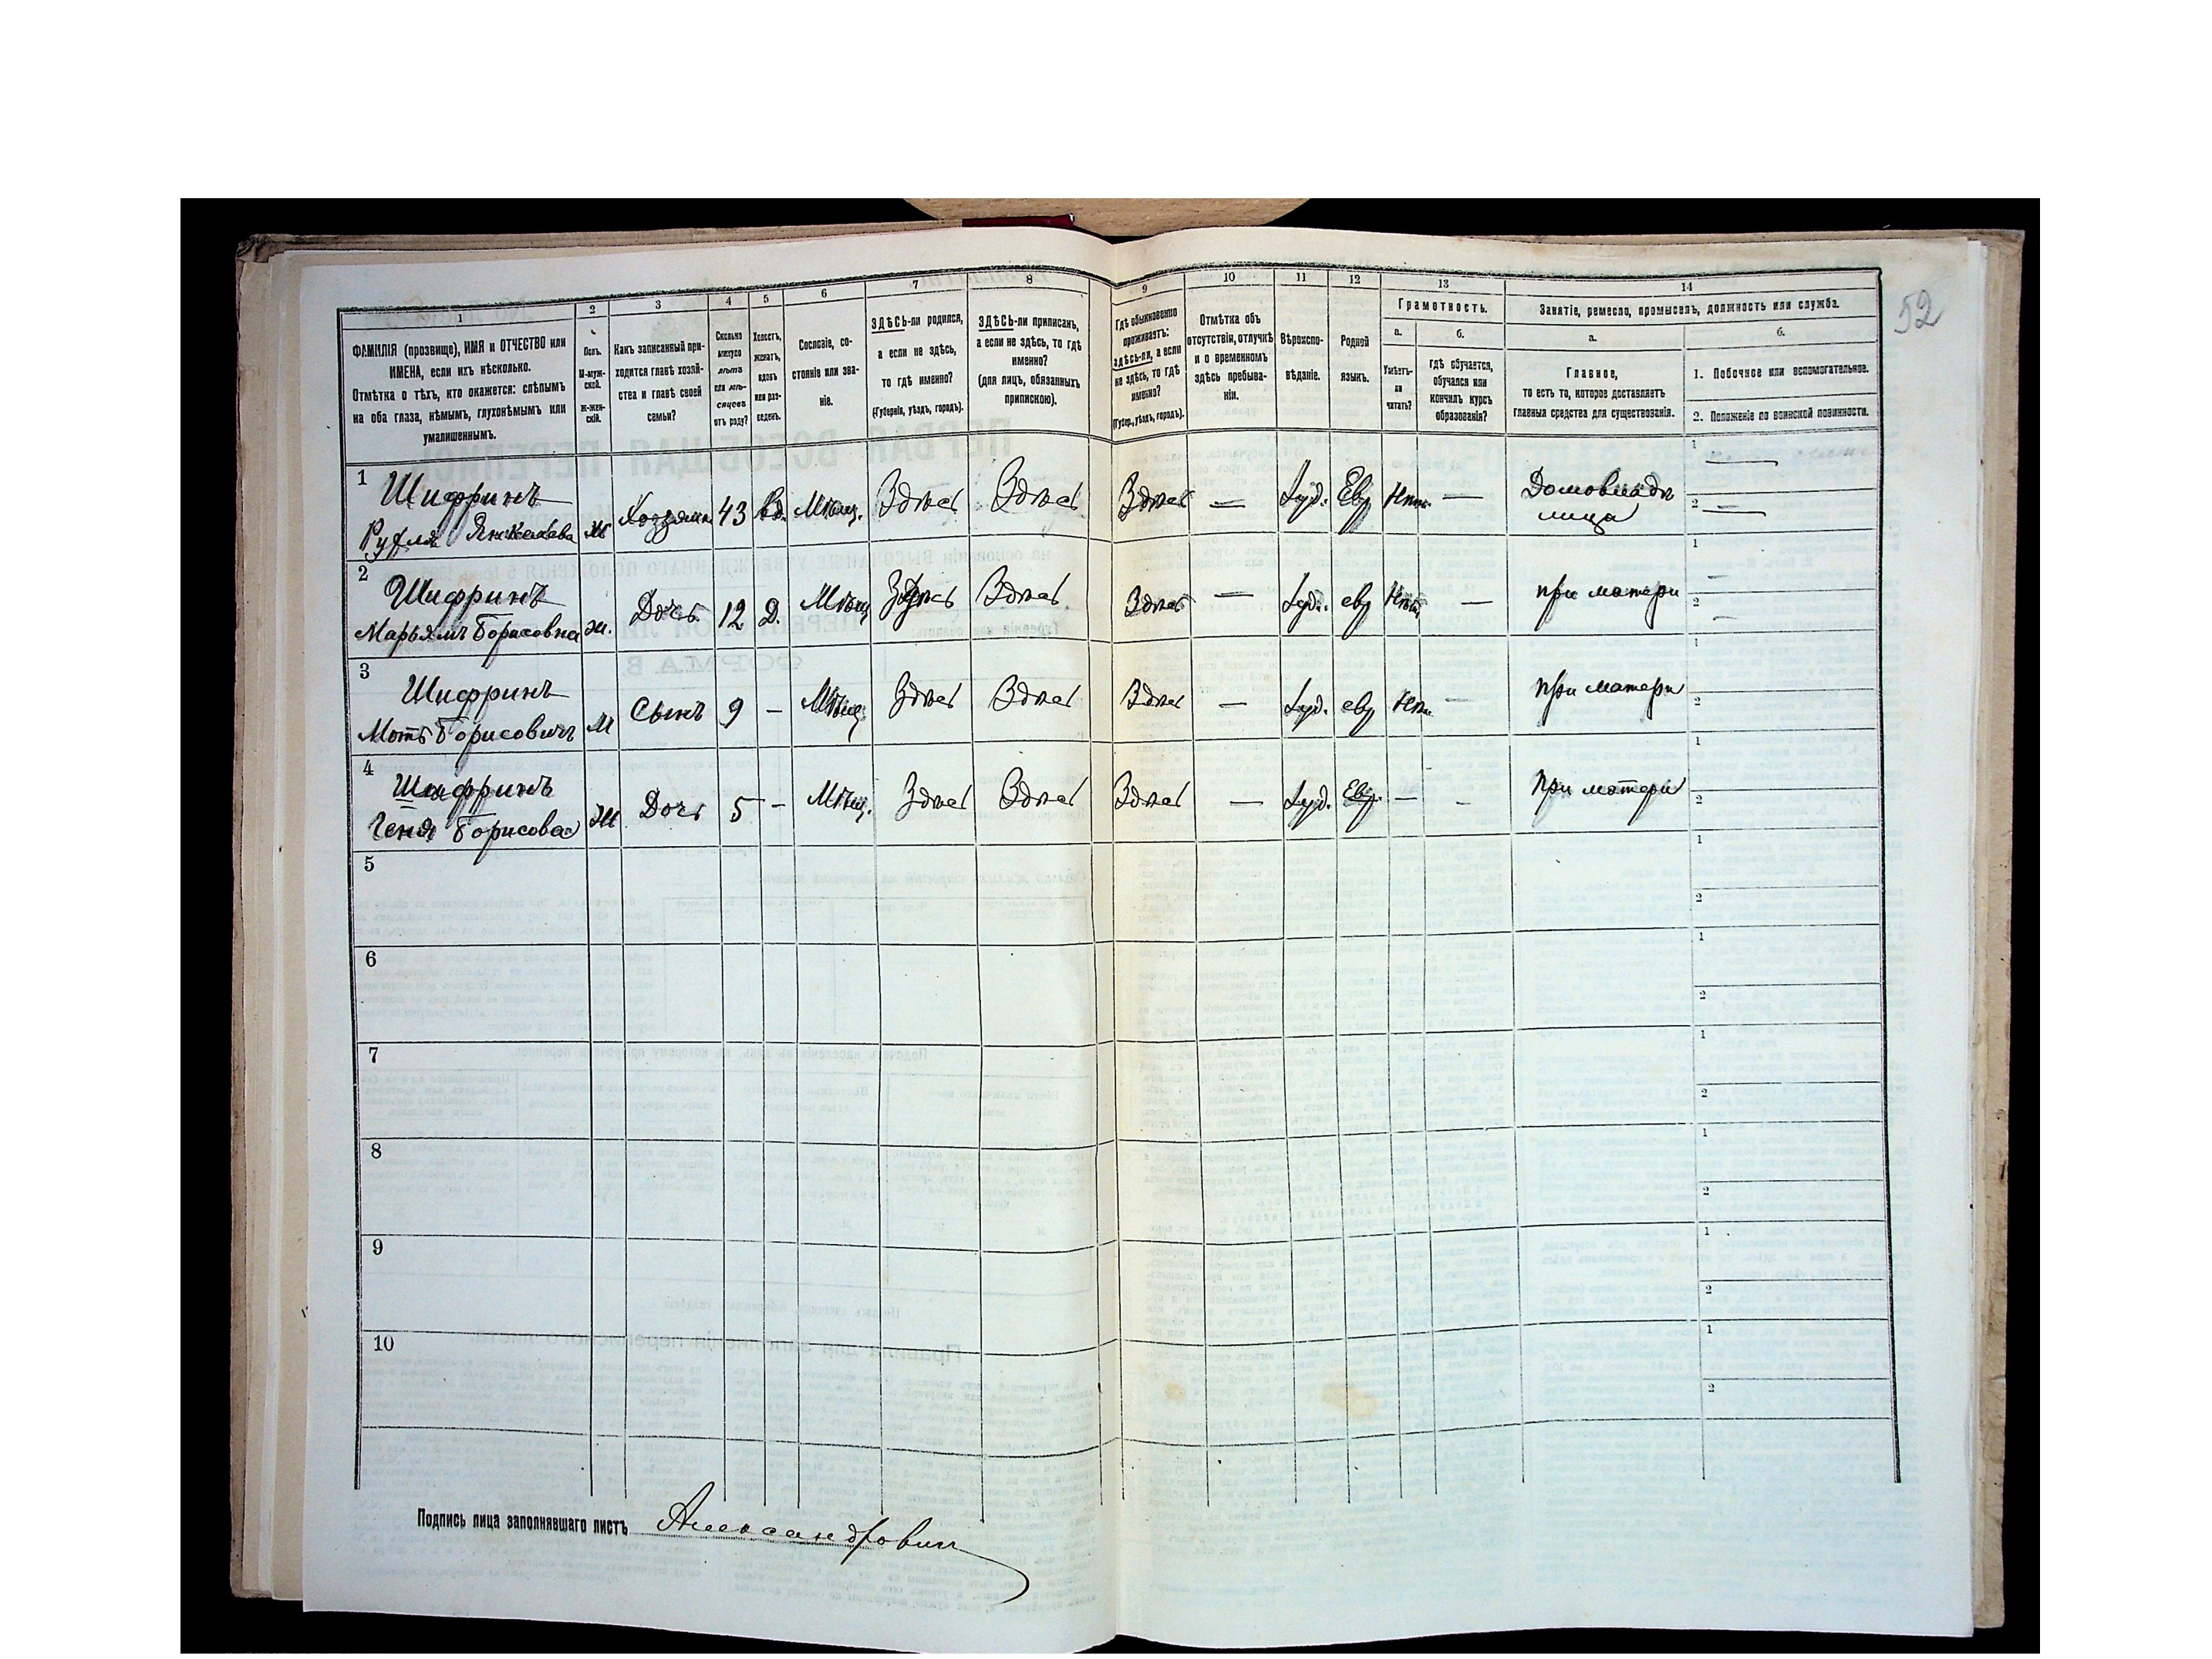 52
1
ФАМИЛІЯ (прозвище), ИМЯ и ОТЧЕСТВО или
ИМЕНА, если ихъ нѣсколько.
Отмѣтка о тѣхъ, кто окажется: слѣпымъ
на оба глаза, нѣмымъ, глухонѣмымъ или
умалишеннымъ.
2
Полъ.
М-муж-
ской.
Ж-жен-
скій.
3
Какъ записанный при-
ходится главѣ хозяй-
ства и главѣ своей
семьи?
4
Сколько
минуло
лѣтъ
или мѣ-
сяцевъ
отъ роду?
5
Холостъ,
женатъ,
вдовъ
или раз-
веденъ.
6
Сословіе, со-
стояніе или зва-
ніе.
7
ЗДѢСЬ-ли родился,
а если не здѣсь,
то гдѣ именно?
(Губернія, уѣздъ, городъ).
8
ЗДѢСЬ-ли приписанъ,
а если не здѣсь, то гдѣ
именно?
(для лицъ, обязанныхъ
припискою).
9
Гдѣ обыкновенно
проживаетъ:
здѣсь-ли, а если
не здѣсь, то гдѣ
именно?
(Губер., уѣздъ, городъ).
10
Отмѣтка объ
отсутствіи, отлучкѣ
и о временномъ
здѣсь пребыва-
ніи.
11
Вѣроиспо-
вѣданіе.
12
Родной
языкъ.
13
Грамотность.
а.
Умѣетъ-
ли
читать?
б.
гдѣ обучается,
обучался или
кончилъ курсъ
образованія?
14
Занятіе, ремесло, промыселъ, должность или служба.
а.
Главное,
то есть то, которое доставляетъ
главныя средства для существованія.
б.
1. Побочное или вспомогательное.
2. Положеніе по воинской повинности.
1
Шифринъ
Янкелева
Ж Хозяйка 43 Вд. Мѣщ. Здѣсь Здѣсь Здѣсь — Іуд. Евр Нѣтъ — Домовладѣ
лица
1 —
2 —
2
Шифринъ
Марьямъ Борисовна ж. Дочь 12 Д. Мѣщ Здѣсь Здѣсь Здѣсь — Іуд. евр Нѣтъ — при матери
1 —
2 —
3
Шифринъ
Мотъ Борисовичъ М Сынъ 9 — Мѣщ Здѣсь Здѣсь Здѣсь — Іуд. евр Нѣт — при матери
1
2
4
Шифринъ
Геня Борисова Ж Дочь 5 — Мѣщ. Здѣсь Здѣсь Здѣсь — Іуд. Евр. — — При матери
1
2
5
1
2
6
1
2
7
1
2
8
1
2
9
1
2
10
1
2
Подпись лица заполнявшаго листъ Александровичъ